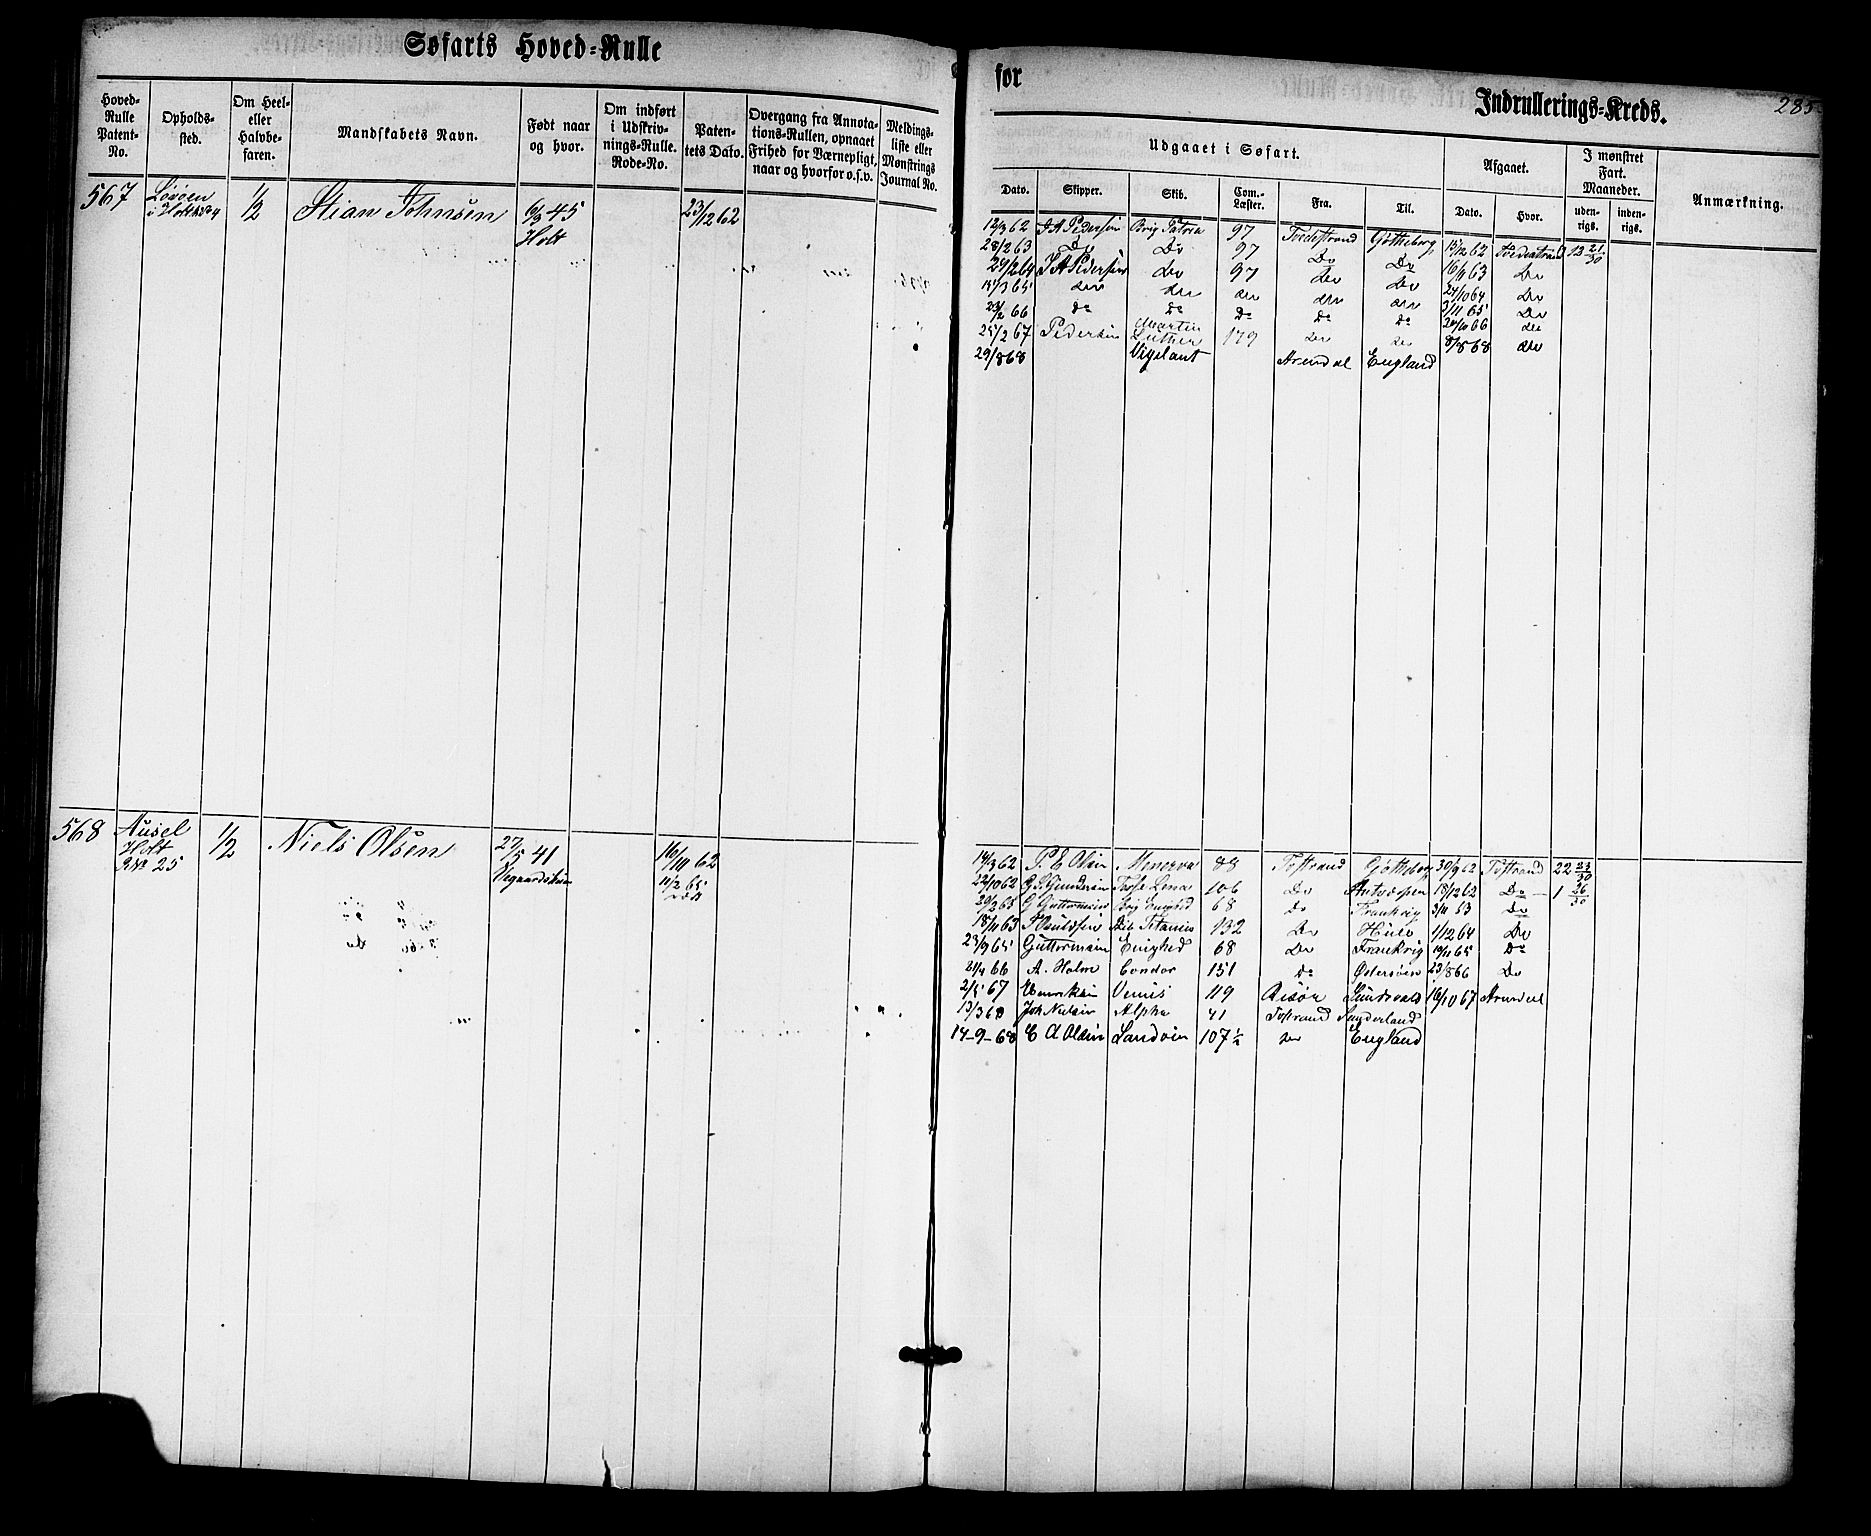 Søfarts Hoved-Rulle
for
Indrullerings-Kreds.
285
Hoved-
Rulle
Patent-
No.
Opholds-
sted.
Om Heel-
eller
Halvbe-
faren.
Mandskabets Navn.
Født naar
og hvor.
Om indført
i Udskriv-
nings-Rulle.
Rode-No.
Paten-
tets Dato.
Overgang fra Annota-
tions-Rullen, opnaaet
Frihed for Værnepligt,
naar og hvorfor o.s.v.
Meldings-
liste eller
Mønstrings
Journal No.
Udgaaet i Søfart.
Afgaaet.
I mønstret
Fart.
Maaneder.
Anmærkning.
Dato.
Skipper.
Skib.
Com.-
Læster.
Fra.
Til.
Dato.
Hvor.
uden-
rigs.
inden-
rigs.
567
½
Stian Johnsen
6/9 45
Holt
23/12 62
12/3 62 J A Pedersen Brig Patria 97 Tvedestrand Gøtheborg 15/12 62 Tvedestrand 13 21/30
28/2 63 Do Do 97 Do Do 16/11 63 Do
29/2 64 J A Pedersen do 97 do do 24/10 64 Do
14/3 65 do do do do do 3/11 65 Do
23/2 66 Do Do Do Do Do 20/11 66 do
25/2 67 Pedersen Martin Luther 179 do do 8/8 68 do
29/8 68 Vigelant Arendal England
568
Holt
25
½
Niels Olsen
27/5 41
Vegaardsheien
16/10 62
14/3 62 P. E Olsen Menerva 88 Tostrand Gøtheborg 30/9 62 Tostrand 22 23/30
22/10 62 G. S. Gundersen Lena 106 Do Antverpen 18/12 62 Do 1 26/30
20/2 63 G Guttormsen Brig Enighed 68 Do Frankrig 3/11 63 Do
18/11 63 Titania 132 Do Hull 1/12 64 Do
23/9 65 Guttormsen Enighed 68 Do Frankrig 19/11 65 Do
21/4 66 A. Holm Condor 151 Do Østersøen 23/8 66 Do
2/5 67 Henriksen Venus 119 Risør Sundsvald 16/10 67 Arendal
13/3 68 Joh Nielsen Alpha 41 Tostrand Sunderland
14-9-68 E A Olsen Sandøen 107½ do England